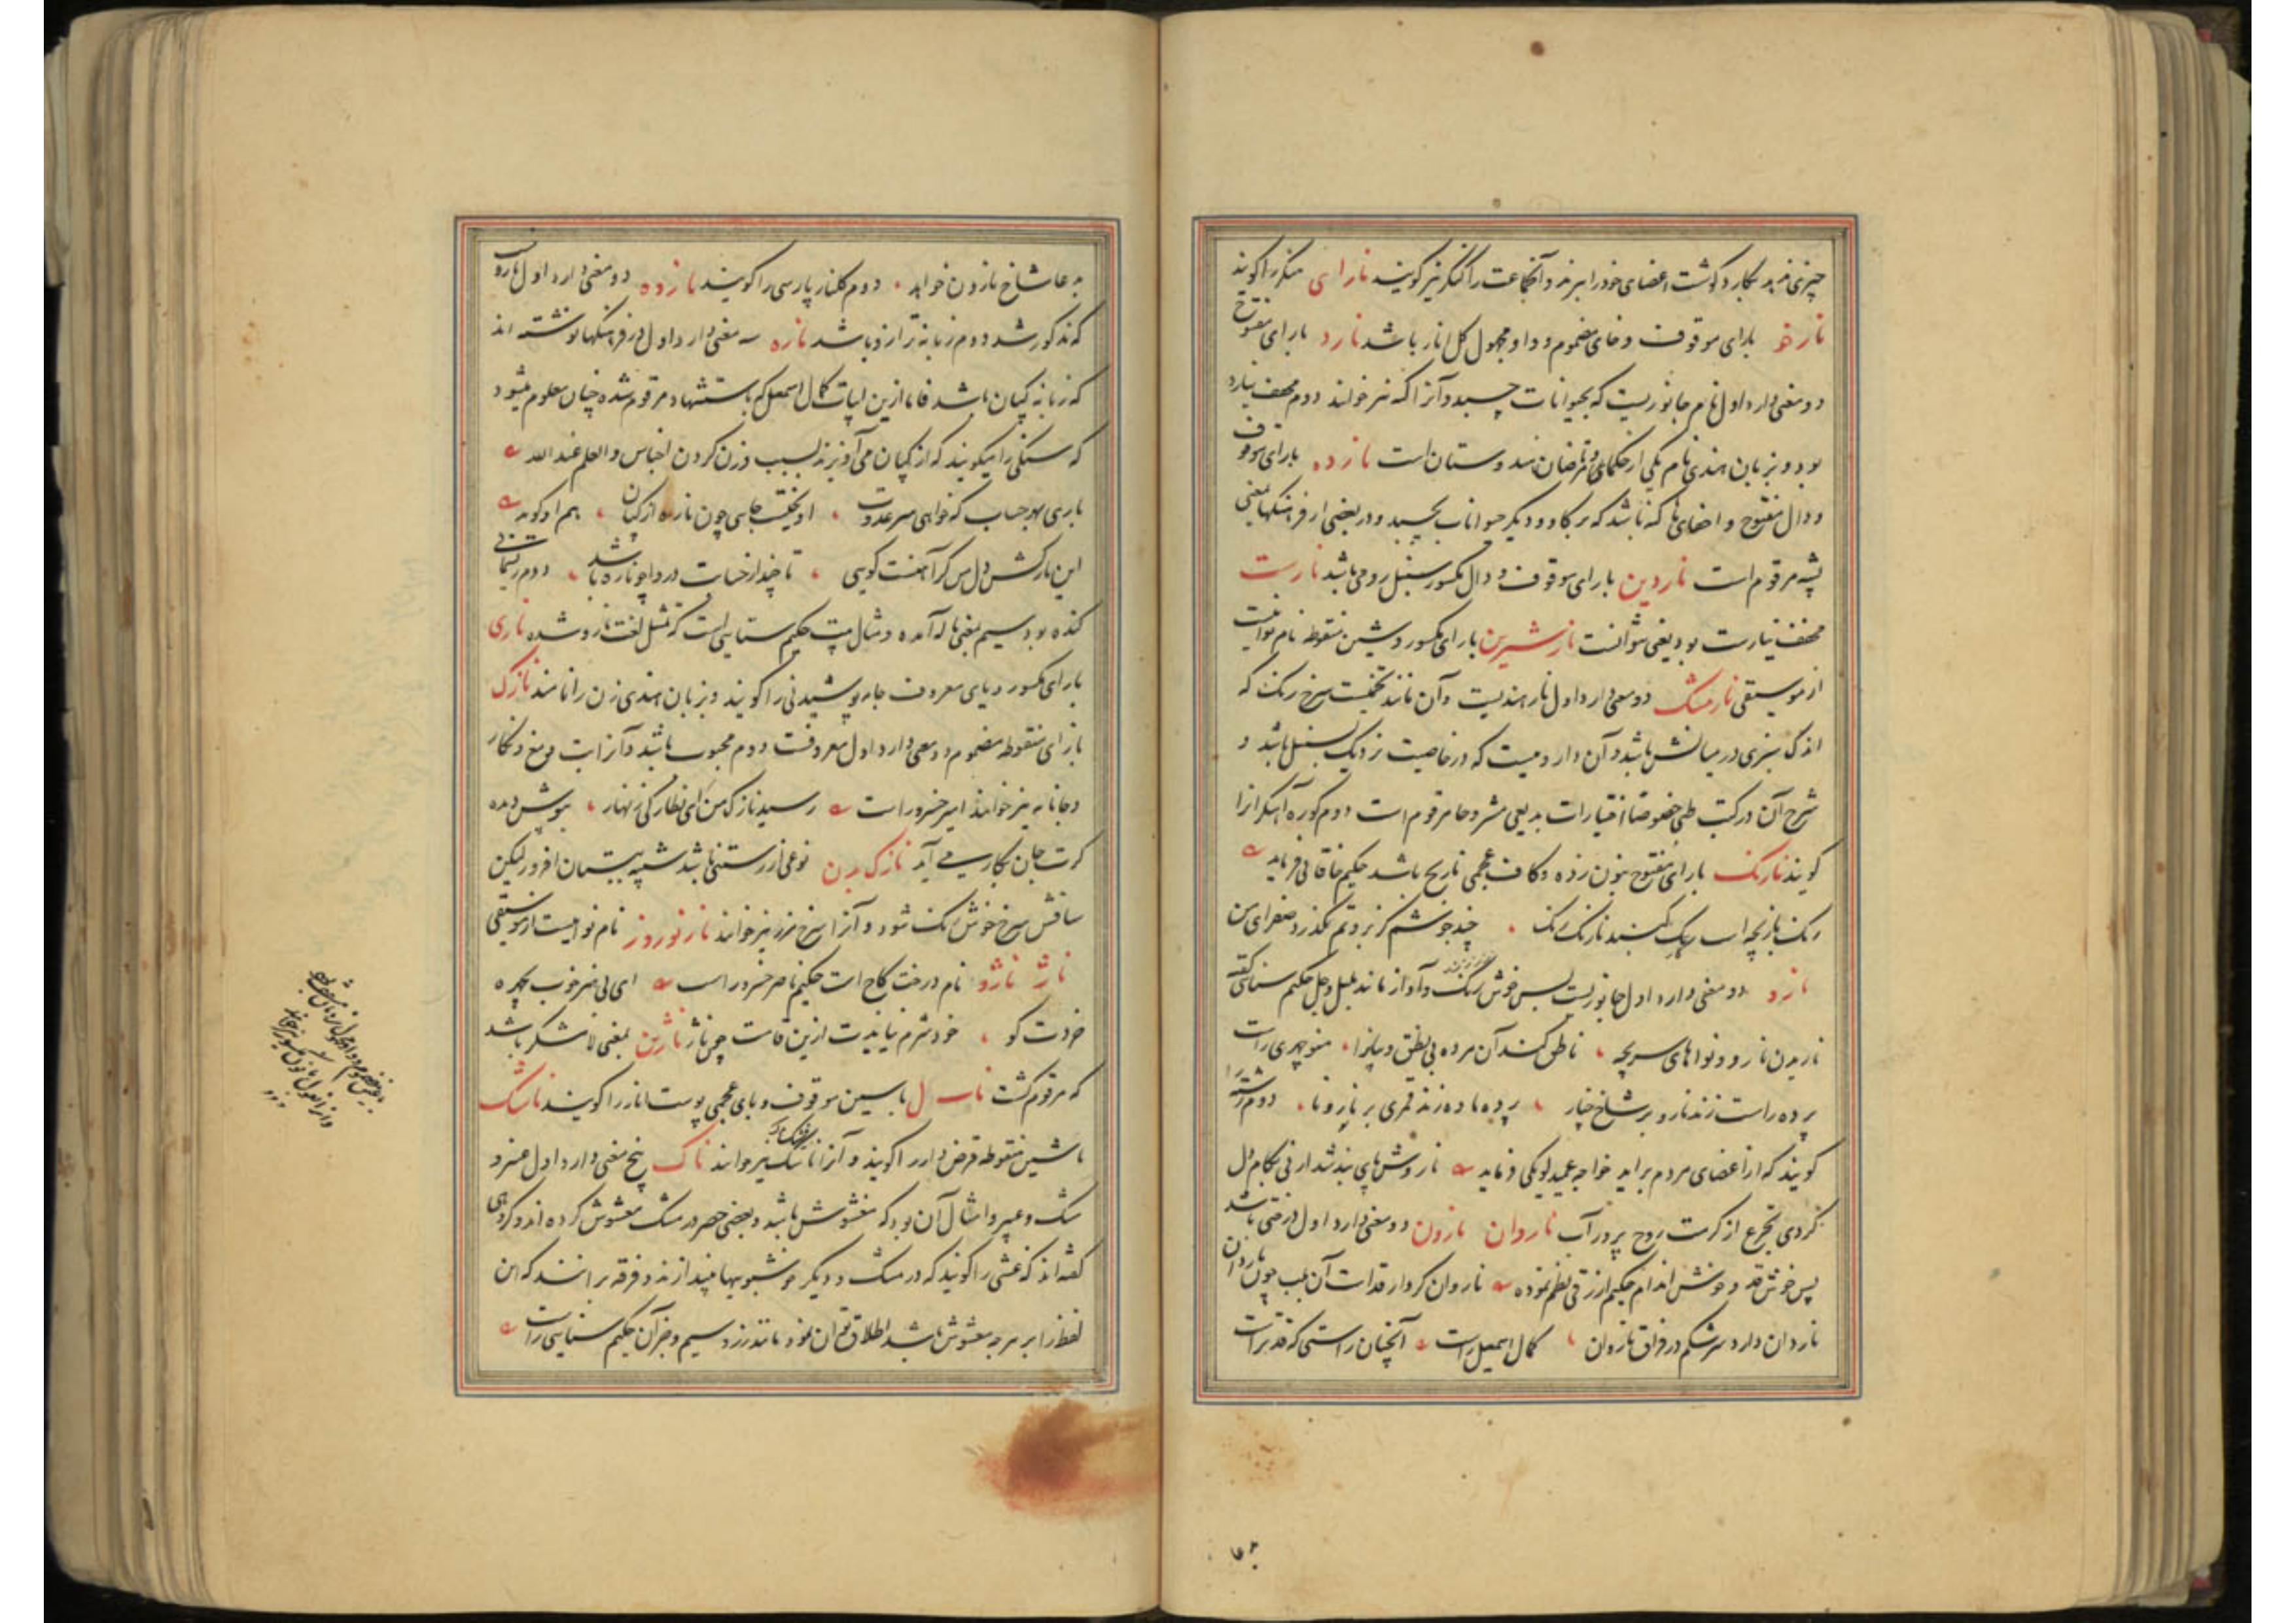 چیزی ندهد بکارد گوشت اعضای خود را ببرند و آنجماعت را کنگر نیز گویند نارای منکر را گویند
نارخو بارای موقوف و خای مضموم و واو مجهول گل انار باشد نارد بارای مفتوح
دو معنی دارد اول نام جانوریست که بحیوانات چسبد و آنرا کنه نیز خوانند دوم مخفف نیارد
بود و بزبان هندی نام یکی از حکمای مرتاضان هندوستان است نارده بارای موقوف
و دال مفتوح و اخفای ها کنه باشد که بر گاو و دیگر حیوانات بچسبد و در بعضی از فرهنگها بمعنی
پشه مرقوم است ناردین بارای موقوف و دال مکسور سنبل رومی باشد نارست
مخفف نیارست بود یعنی نتوانست نارشیرین بارای مکسور و شین منقوطه نام نوائیست
از موسیقی نارمشک دو معنی دارد اول نار هندیست و آن مانند تخمیست سرخ رنگ که
اندک سبزی در میانش باشد و آن داروییست که در خاصیت نزدیک بسنبل باشد و
شرح آن در کتب طبی خصوصا اختیارات بدیعی مشروحا مرقوم است دوم کوره آهنگرانرا
گویند نارنگ بارای مفتوح بنون زده و کاف عجمی نارنج باشد حکیم خاقانی فرماید
رنگ بازیچه است رنگ گنبد نارنگ رنگ چند جوشم کز بروتم نگذرد صفرای من
نارو دو معنی دارد اول جانوریست بس خوش رنگ و آواز مانند بلبل حکیم سنائی گفته
نارون نارو و نواهای سریچه ناطق کند آن مرده بی نطق و بیانرا منوچهری راست
پرده راست زند نارو بر شاخ چنار پرده باده زند قمری بر نارونا دوم رشته را
گویند که از اعضای مردم برآید خواجه عمید لویکی فرماید
گردی تجرع از کرمت روح پرور آب ناروان نارون دو معنی دارد اول درختی باشد
بس خوش قد و خوش اندام حکیم ازرقی نظم نموده ناروان کردار قد است آن بلب چون ناردان
ناردان دارد سرشکم در فراق ناروان کمال اسمعیل راست آنچنان راستی که قد تراست
به عاشاخ نارون خواهد دوم گلنار پارسی را گویند نارده دو معنی دارد اول نارو
که مذکور شد دوم زبانه ترازو باشد ناره سه معنی دارد اول در فرهنگها نوشته اند
که زبانه کپان باشد فاما ازین ابیات کمال اسمعیل که باستشهاد مرقوم شده چنان معلوم میشود
که سنگی را میگویند که از کپان می آویزند بسبب وزن کردن اجناس و العلم عند الله
باری بهر حساب که خواهی سر عدوت آویخته بجای چون ناره از کپان هم او گوید
این بارکش دل من گر آهنست گویی تا چند از حسات در وا چو ناره باشد دوم
کنده بود سیم بمعنی ناله آمده و مثال بیت حکیم سنائی است که بمثل لغت نارو شده ناری
بارای مکسور و یای معروف جامه پوشیدنی را گویند و بزبان هندی زن را نامند نازک
بازای منقوطه مضموم دو معنی دارد اول معروفست دوم محبوب باشد و آنرا بت و مغ و نگار
و جانانه نیز خوانند امیر خسرو راست رسید نازک من ای نظارگی زنهار بپوش دیده
گرت جان بکار می آید نازک بدن نوعی از رستنی باشد شبیه ببستان افروز لیکن
ساقش سرخ خوش رنگ شود و آنرا سرخ مرز نیز خوانند نازنوروز نام نوائیست از موسیقی
ناژ ناژو نام درخت کاج است حکیم ناصر خسرو راست ای بی هنر خوب چهره
خردت کو خود شرم نیایدت ازین قامت چون ناژ ناژین بمعنی لاشکر باشد
که مرقوم گشت ناسپال باسین موقوف و بای عجمی پوست انار را گویند ناشک
باشین منقوطه قرض دار را گویند و آنرا ناسک نیز خوانند ناک پنج معنی دارد اول عنبر و
مشک و عبیر و امثال آن بود که مغشوش باشد و بعضی حصر در مشک مغشوش کرده اند و گروهی
گفته اند که غشی را گویند که در مشک و دیگر خوشبویها بیندازند و فرقه برانند که این
لفظ را بر هرچه مغشوش باشد اطلاق توان نمود مانند زر و سیم و جز آن حکیم سنایی راست